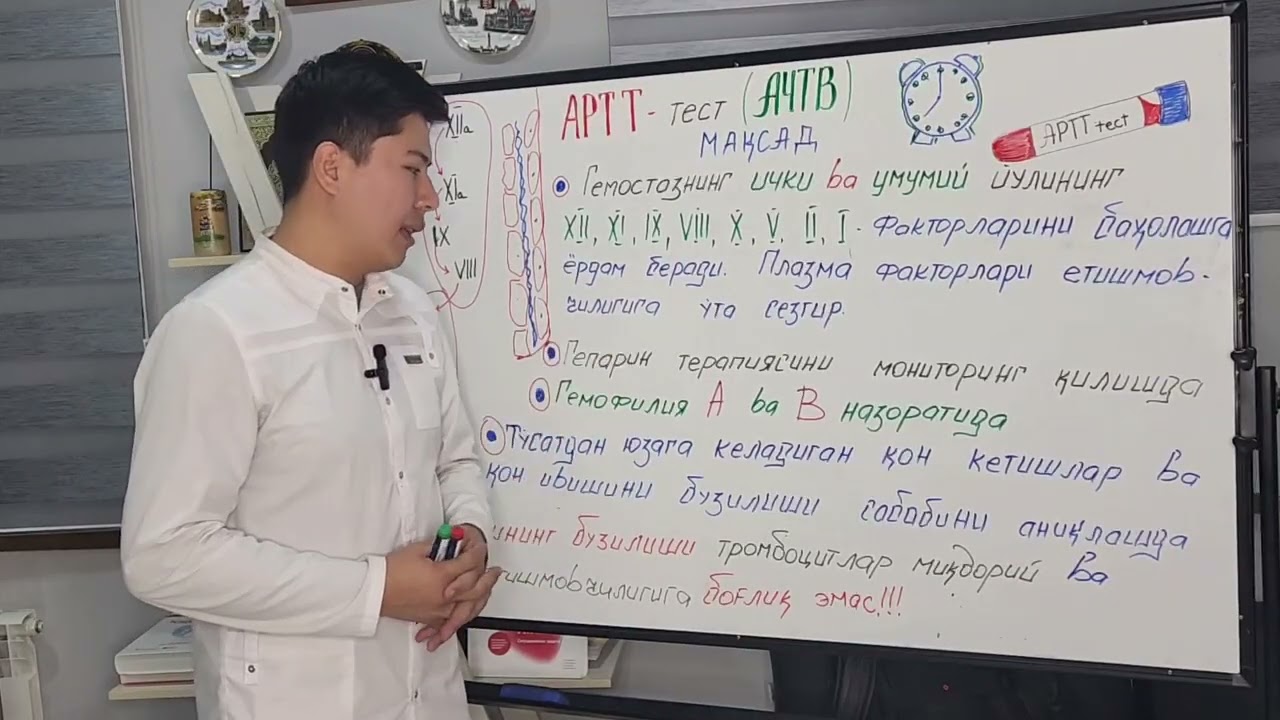 XIIa
XIa
IX
VIII
APTT - тест (АЧТВ)
МАҚСАД
APTT тест
Гемостазнинг ички ва умумий йулининг
XII, XI, IX, VIII, X, V, II, I - Факторларини баҳолашга
ёрдам беради. Плазма факторлари етишмов-
чилигига ўта сезгир.
Гепарин терапиясини мониторинг қилишда
Гемофилия А ва В назоратида
Тўсатдан юзага келадиган қон кетишлар ва
қон ивишини бузилиши сабабини аниқлашда
бузилиши тромбоцитлар миқдорий ва
боғлиқ эмас!!!